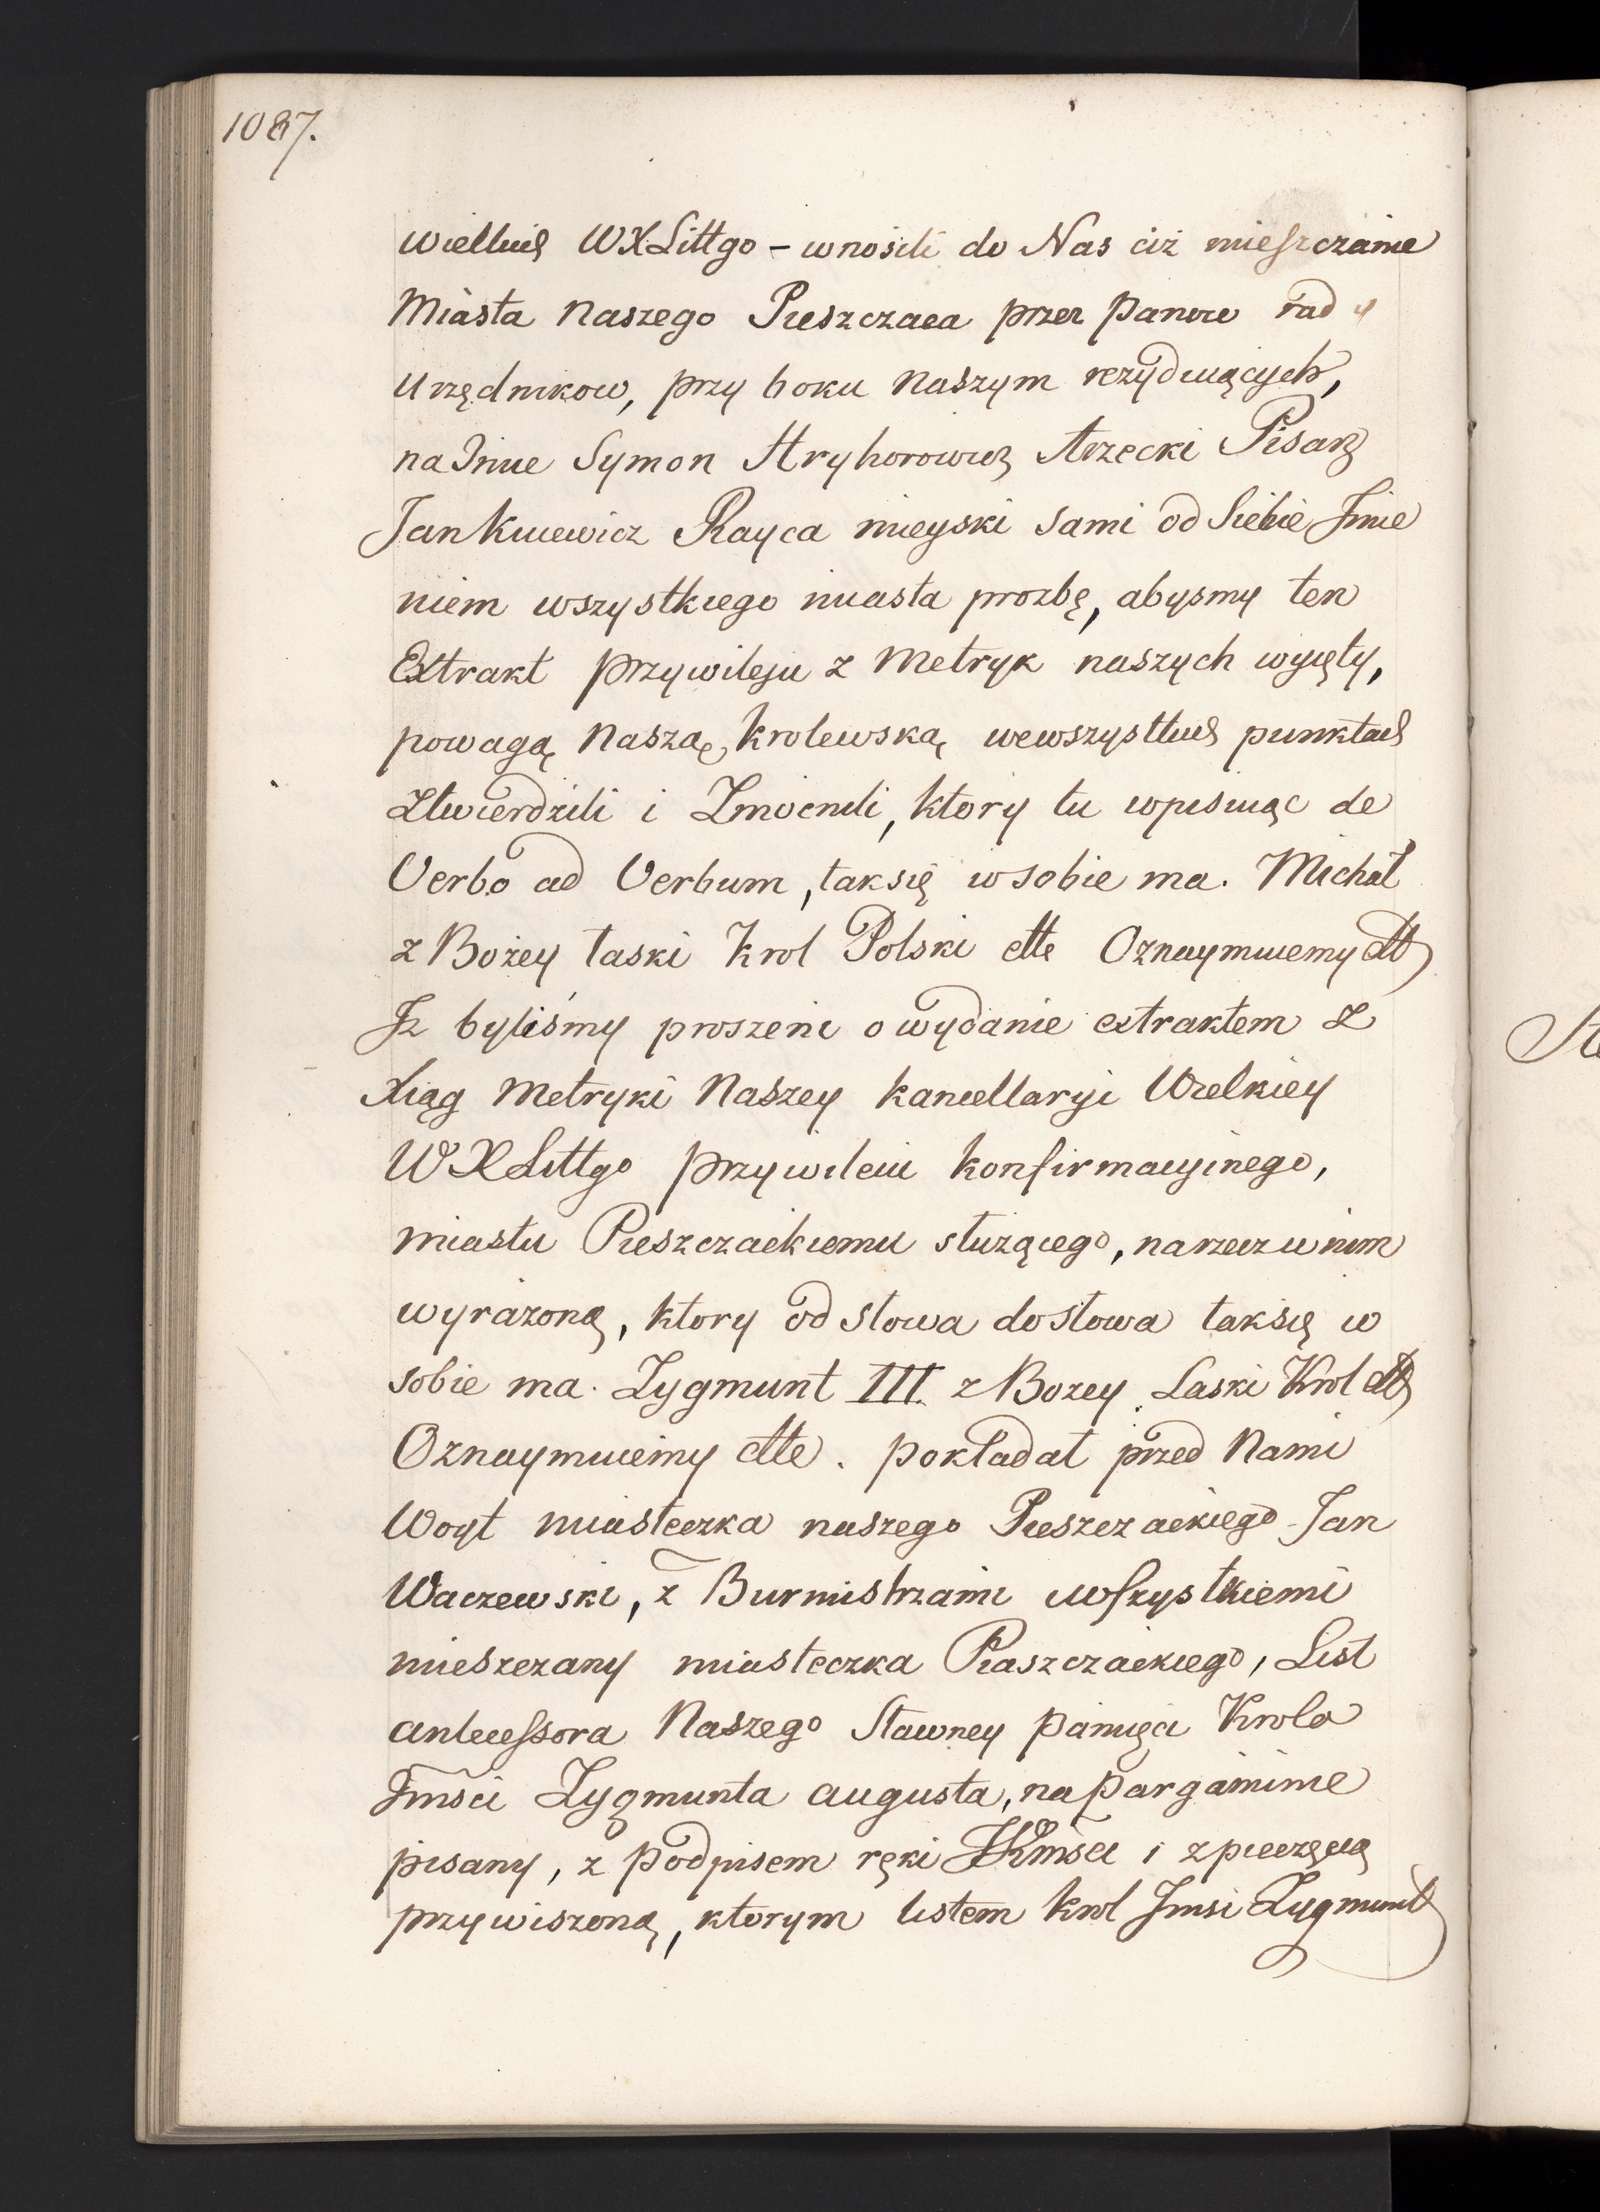 1087.
wielkich WXLittgo – wnosili do Nas ciż mieszczanie
Miasta Naszego Pieszczaca przez Panow rad y
Urzędnikow, przy boku Naszym rezyduiących,
na Imie Symon Hryhorowicz Arzecki Pisarz
Jan Kucewicz Rayca mieyski sami od Siebie Imie
niem wszystkiego miasta prozbę, abysmy ten
Extrakt przywileju z Metryk naszych wyięty,
powagą Naszą, krolewską, wewszystkich punktach
Ztwierdzili i Zmocnili, ktory tu wpisuiąc de
Verbo ad Verbum, taksię wsobie ma. Michał
z Bożey łaski Krol Polski etc Oznaymuiemy etc
Iż byliśmy proszeni o wydanie extraktem z
Xiąg Metryki Naszey kancellaryi Wielkiey
WXLittgo przywileiu konfirmacyinego,
miastu Pieszczackiemu służącego, narzecz wnim
wyrażoną, ktory od słowa dosłowa taksię w
sobie ma. Zygmunt III. z Bozey Łaski Krol etc
Oznaymuiemy etc. pokładał przed Nami
Woyt miasteczka naszego Pieszczackiego Jan
Waczewski, z Burmistrzami wszystkiemi
mieszczany miasteczka Piaszczackiego, List
antecessora Naszego Sławney pamięci Krola
Jmsci Zygmunta augusta, na pargaminie
pisany, z podpisem ręki JKmsci i zpieczęcią
przywiszoną, ktorym listem krol Jmsi Zygmunt